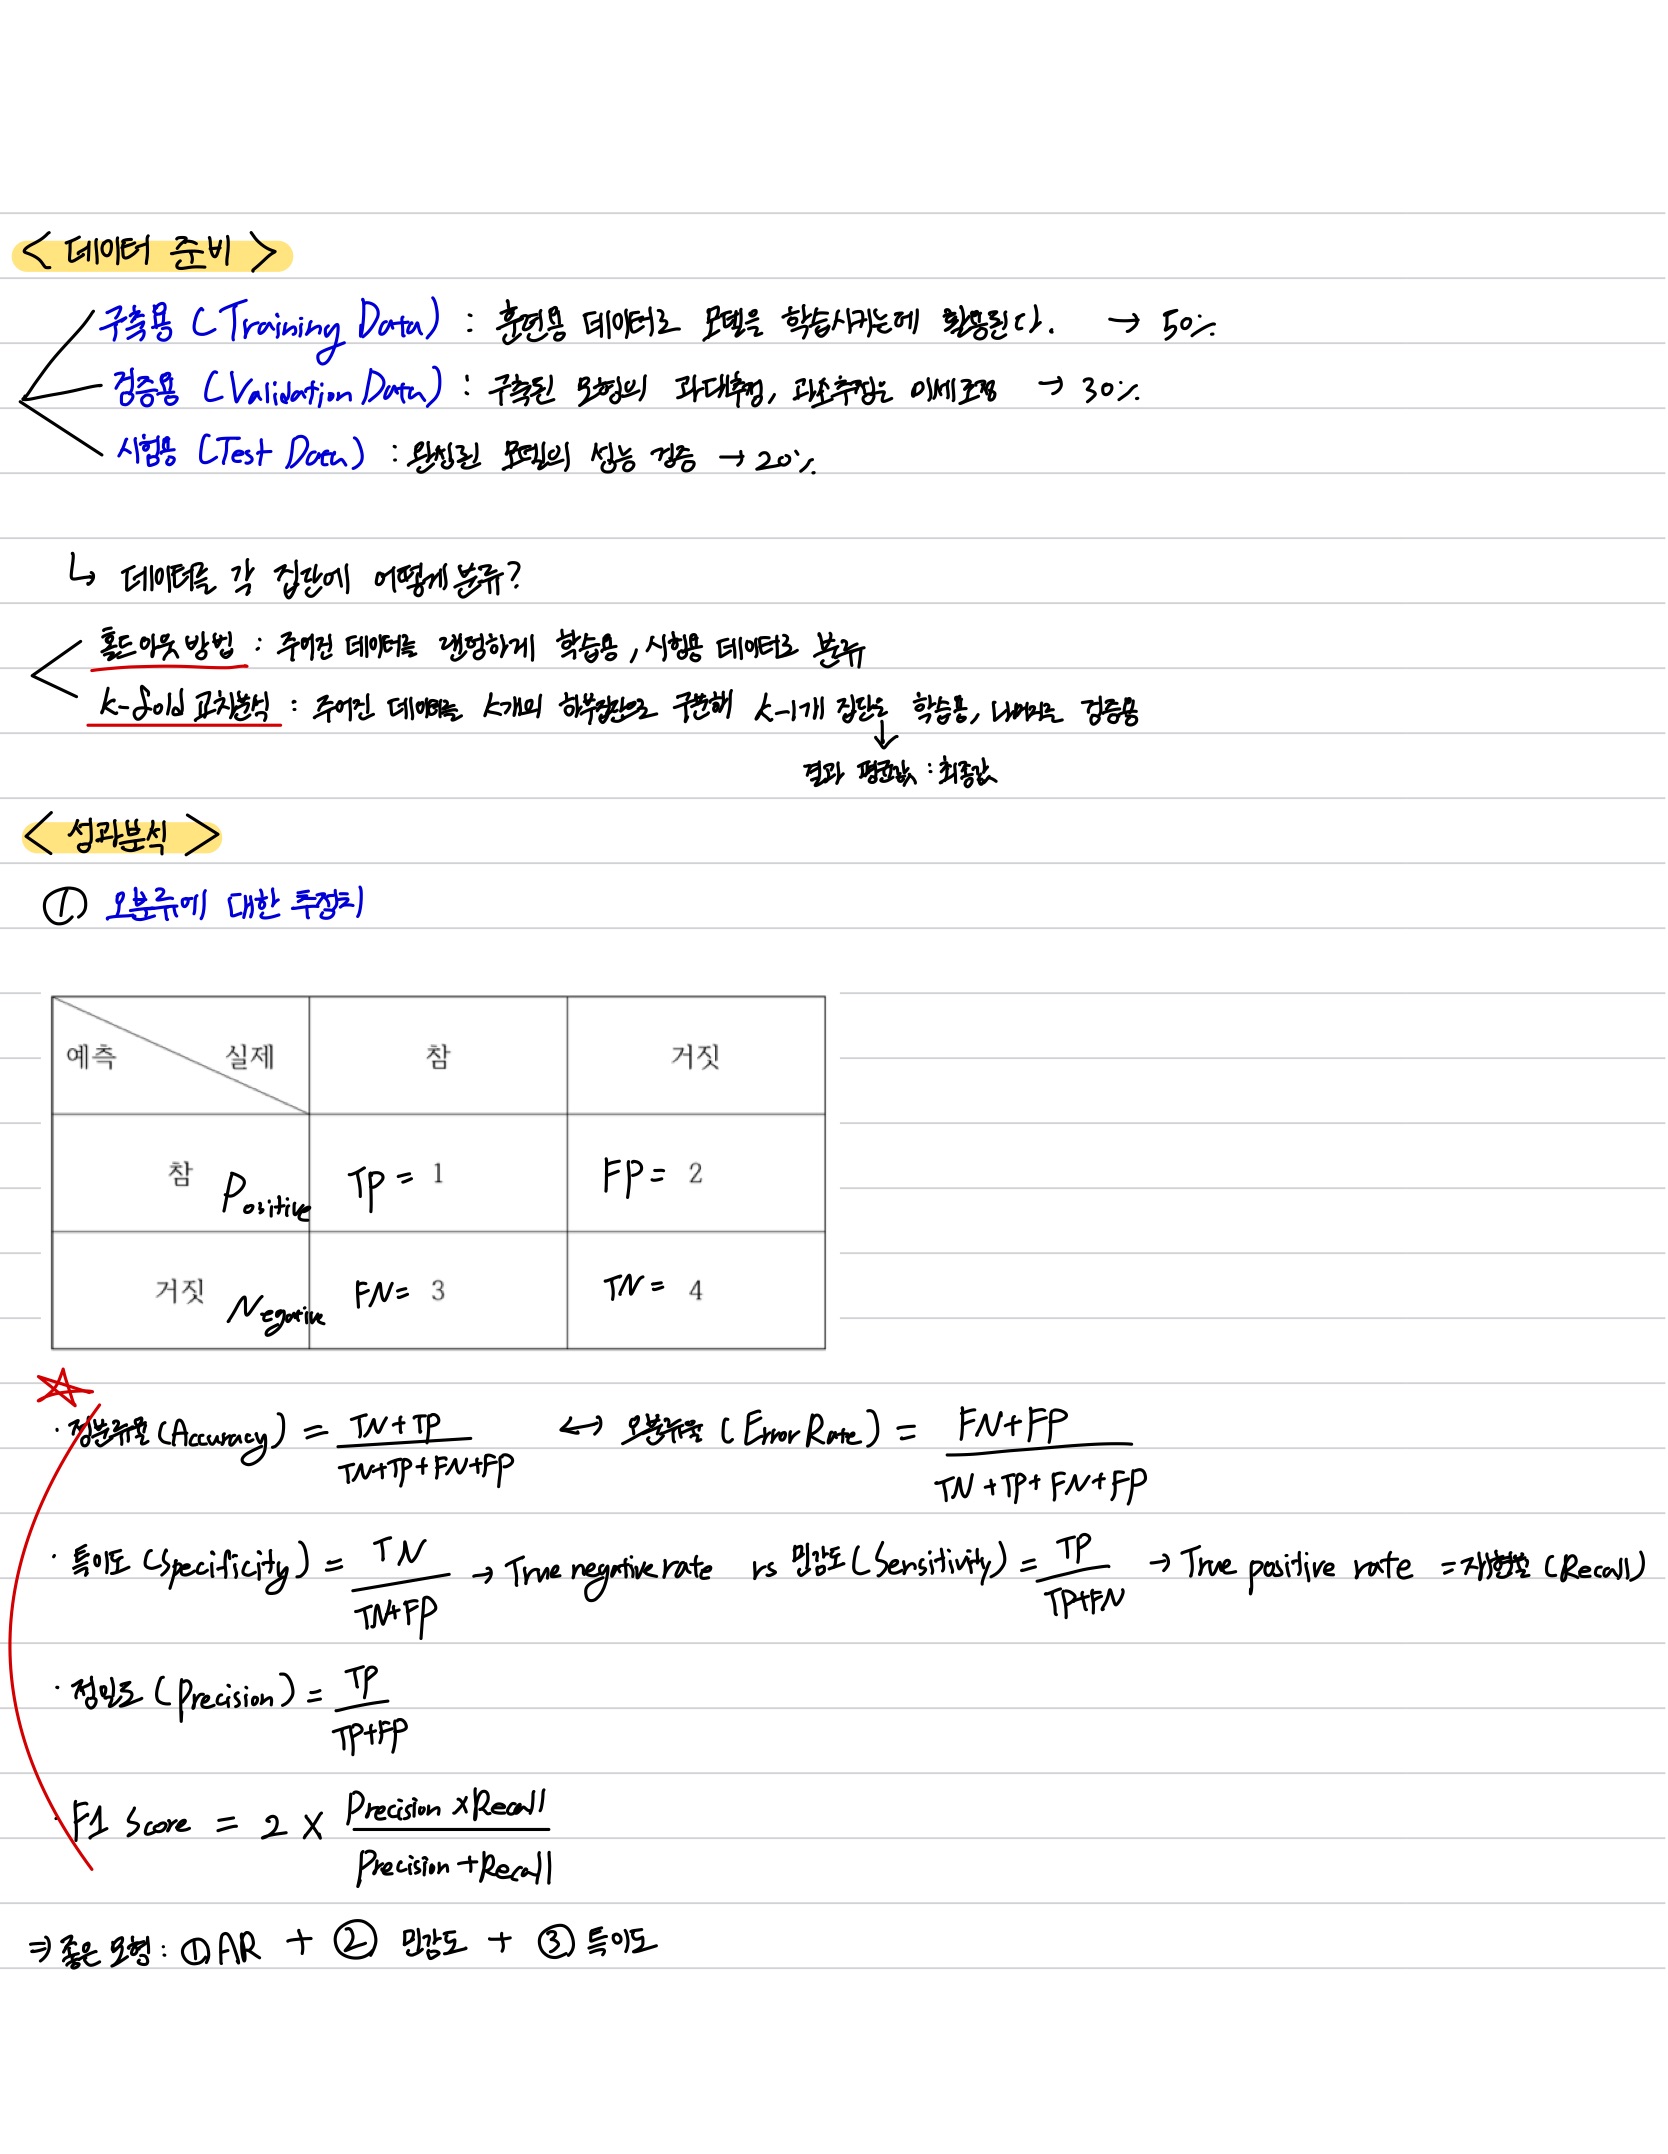 < 데이터 준비 >
구축용 (Training Data) : 훈련용 데이터로 모델을 학습시키는데 활용된다. → 50%
검증용 (Validation Data) : 구축된 모형의 과대추정, 과소추정을 미세조정 → 30%
시험용 (Test Data) : 완성된 모델의 성능 검증 → 20%
↳ 데이터를 각 집단에 어떻게 분류?
홀드아웃 방법 : 주어진 데이터를 랜덤하게 학습용, 시험용 데이터로 분류
k-fold 교차분석 : 주어진 데이터를 k개의 하부집단으로 구분해 k-1개 집단은 학습용, 나머지는 검증용
↓
결과 평균값 : 최종값
< 성과분석 >
① 오분류에 대한 추정치
예측 실제 참 거짓
참 Positive TP = 1 FP = 2
거짓 Negative FN = 3 TN = 4
· 정분류율 (Accuracy) = TN+TP / TN+TP+FN+FP ↔ 오분류율 (Error Rate) = FN+FP / TN+TP+FN+FP
· 특이도 (Specificity) = TN / TN+FP → True negative rate vs 민감도 (Sensitivity) = TP / TP+FN → True positive rate = 재현율 (Recall)
· 정밀도 (Precision) = TP / TP+FP
· F1 Score = 2 × Precision × Recall / Precision + Recall
⇒ 좋은 모형 : ① AR + ② 민감도 + ③ 특이도